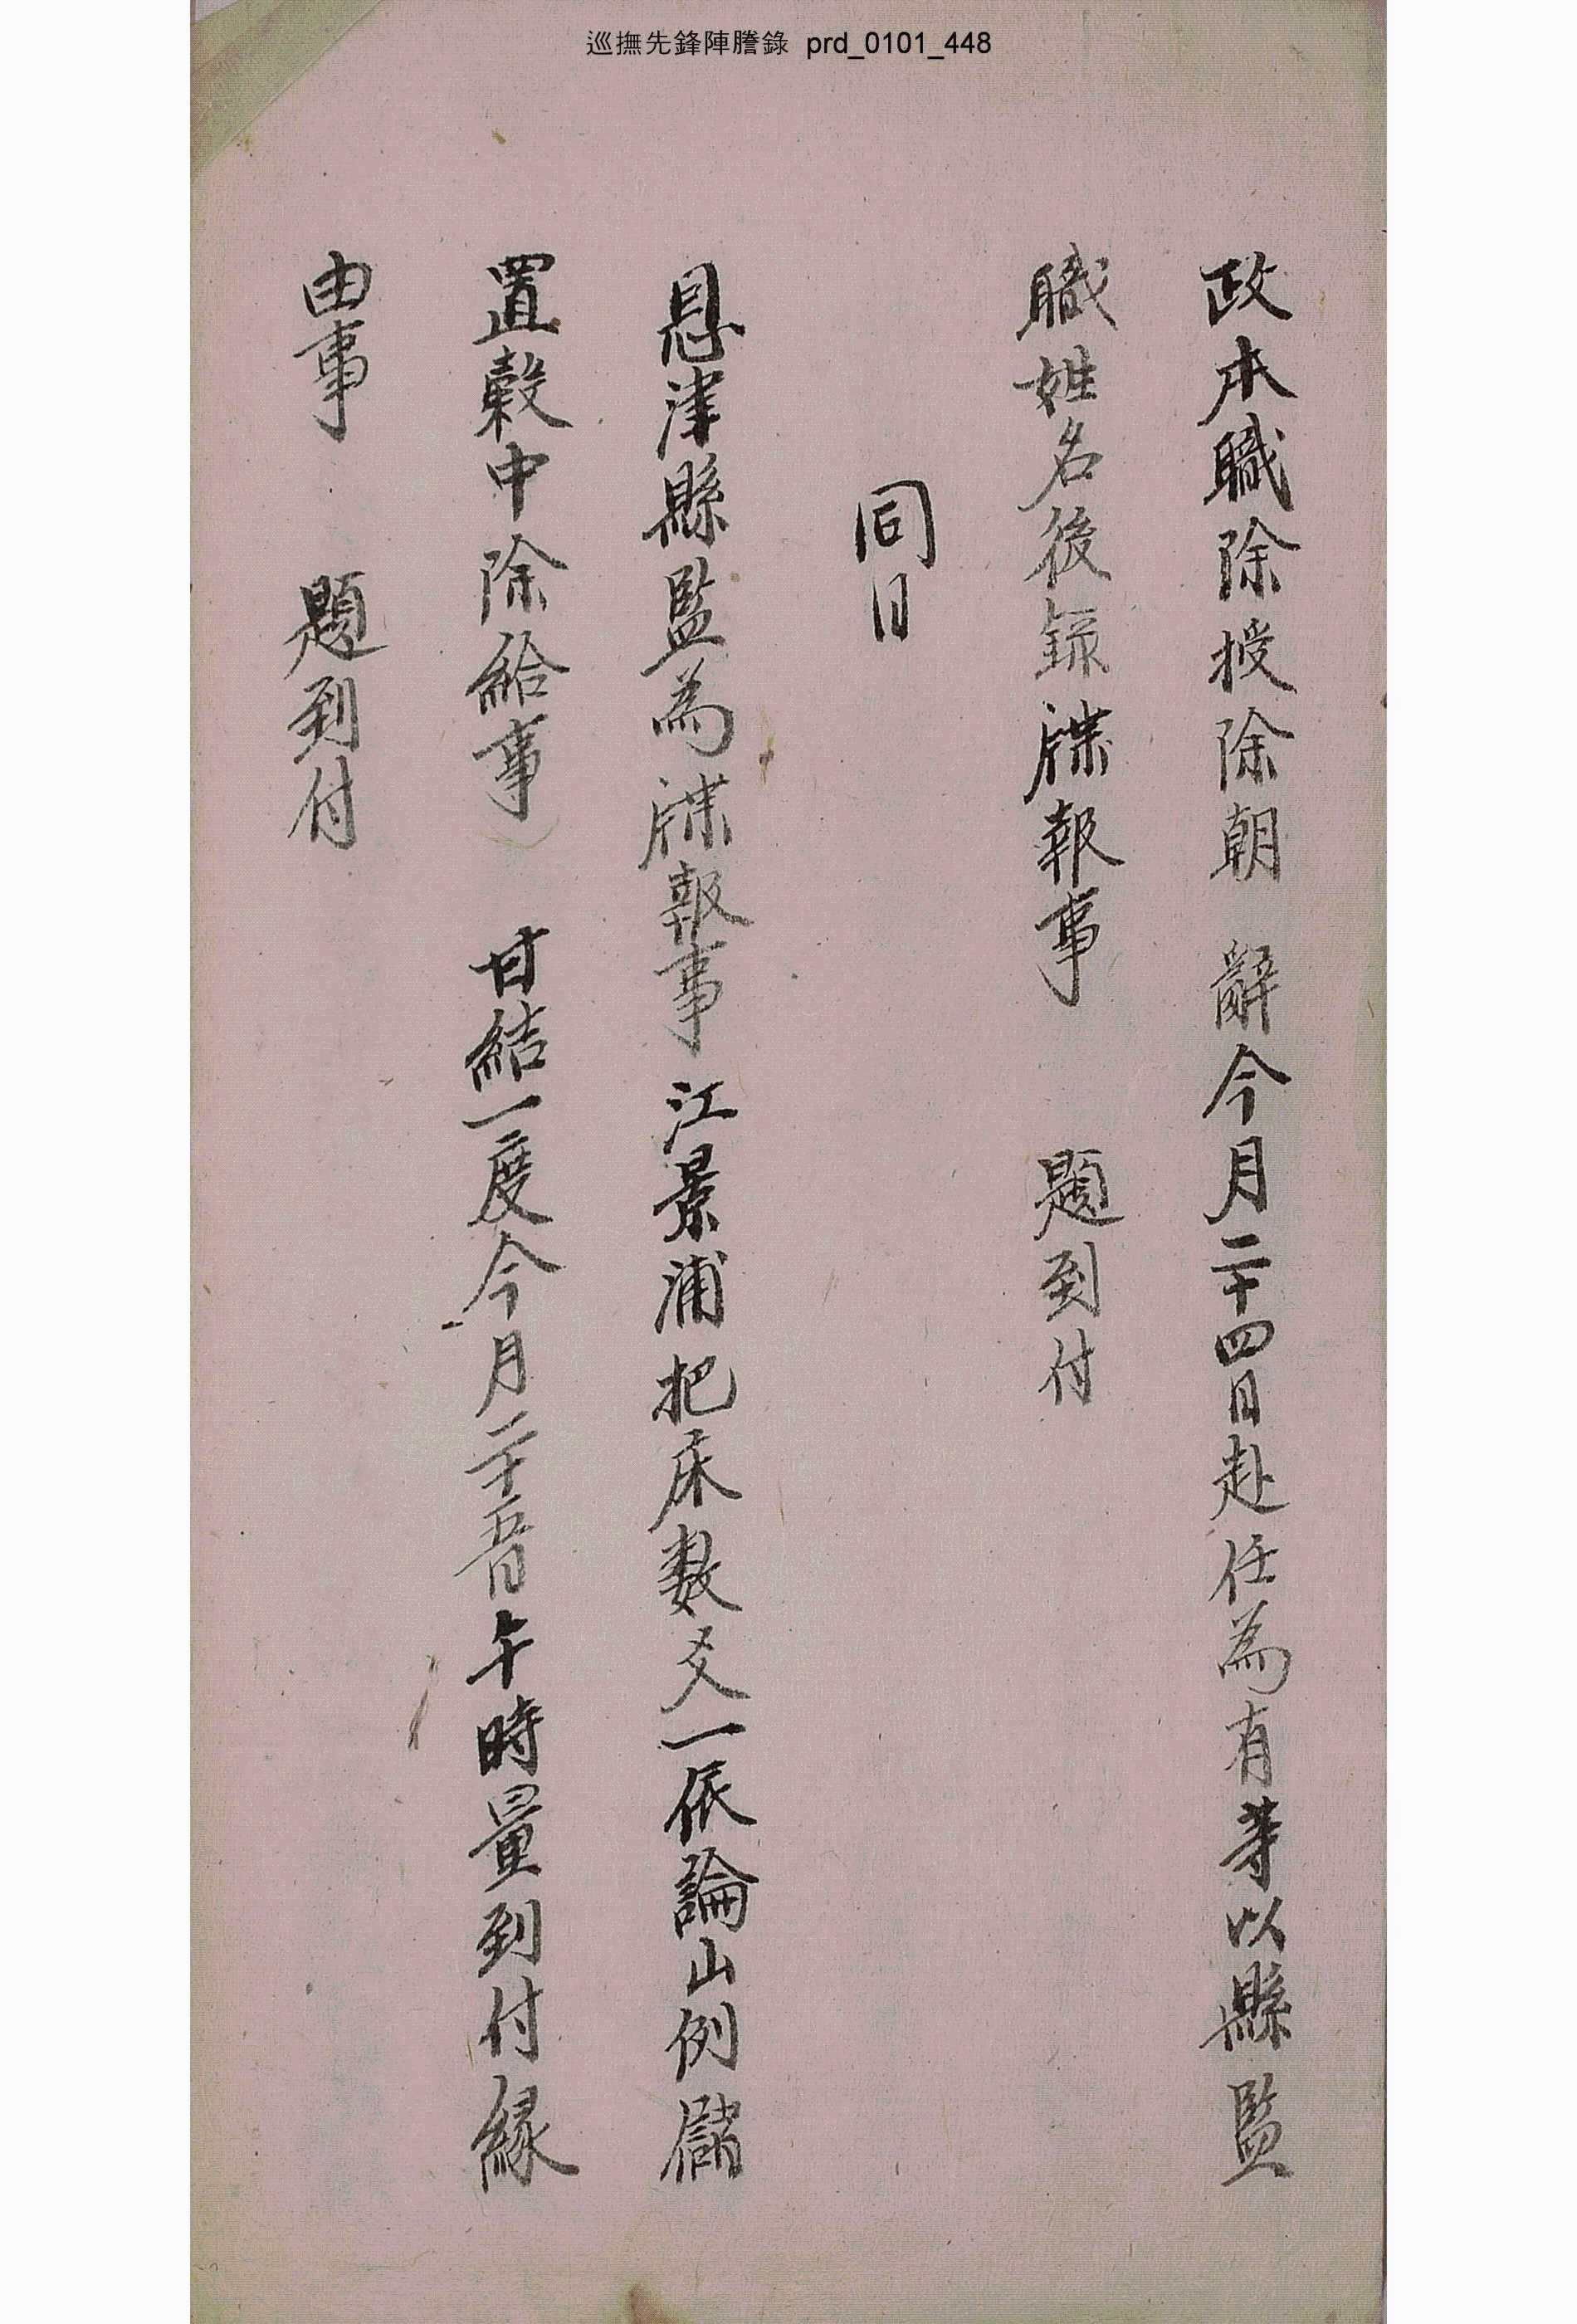 巡撫先鋒陣謄錄 prd_0101_448
政本職除授除朝 辭今月二十四日赴任為有等以縣監
職姓名後錄牒報事 題到付
同日
恩津縣監為牒報事江景浦把床數爻一依論山例儲
置穀中除給事 甘結一度今月二十五日午時量到付緣
由事 題到付